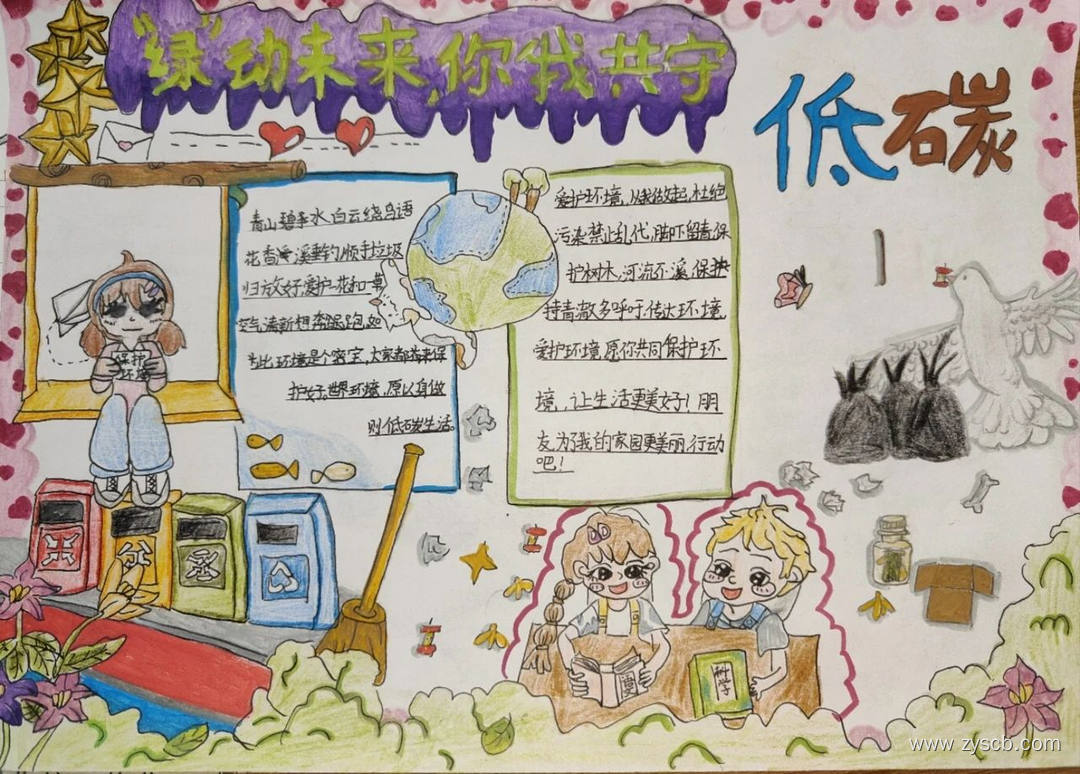 “绿”动未来,你我共守
低碳
青山碧条水,白云绕鸟语
花香漫溪垂钓,顺手垃圾
归放好,爱护一花和一草
空气清新想奔跑,如
此环境是个宝,大家都来保
护好,世界环境,原以身做
则,低碳生活。
爱护环境,从我做起,杜绝
污染禁止乱伐,脚下留青,保
护树木,河流不溪,保护
持青 多呼吁,传达环境,
爱护环境,愿你共同保护环
境,让生活更美好!朋
友,为了我的家园更美丽,行动
吧!
保护
环境
种子
www.zyscb.com